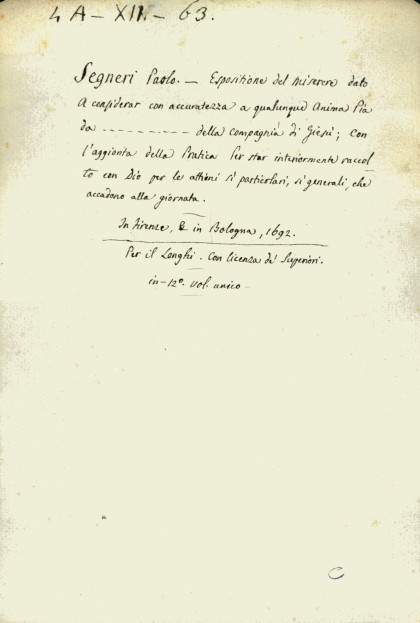 4 A - XII - 63.
Segneri Paolo. — Espositione del miserere dato
A considerar con accuratezza a qualunque Anima Pia
da - - - - - - - - - della Compagnia di Giesù; Con
l'aggionta della Pratica Per star interiormente raccol
to con Dio per le attioni sì particolari, sì generali, che
accadono alla giornata.
In Firenze, & in Bologna, 1692.
Per il Longhi. Con licenza de' Superiori.
in-12°. vol. unico -
C